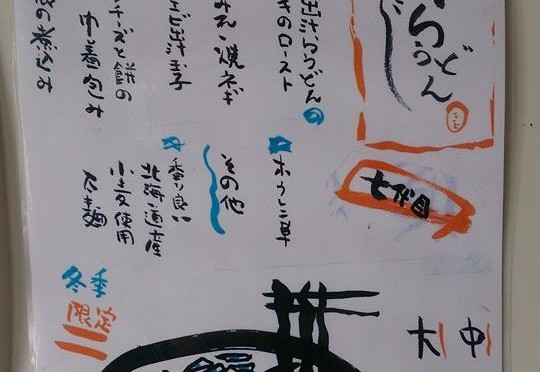 らうどん
七代目
中
大
出汁らうどんの
きのロースト
みそ、焼ネギ
エビ出汁玉子
チーズと餅の
巾着包み
の煮込み
ホウレン草
その他
香り良い
北海道産
小麦使用
冬季
限定